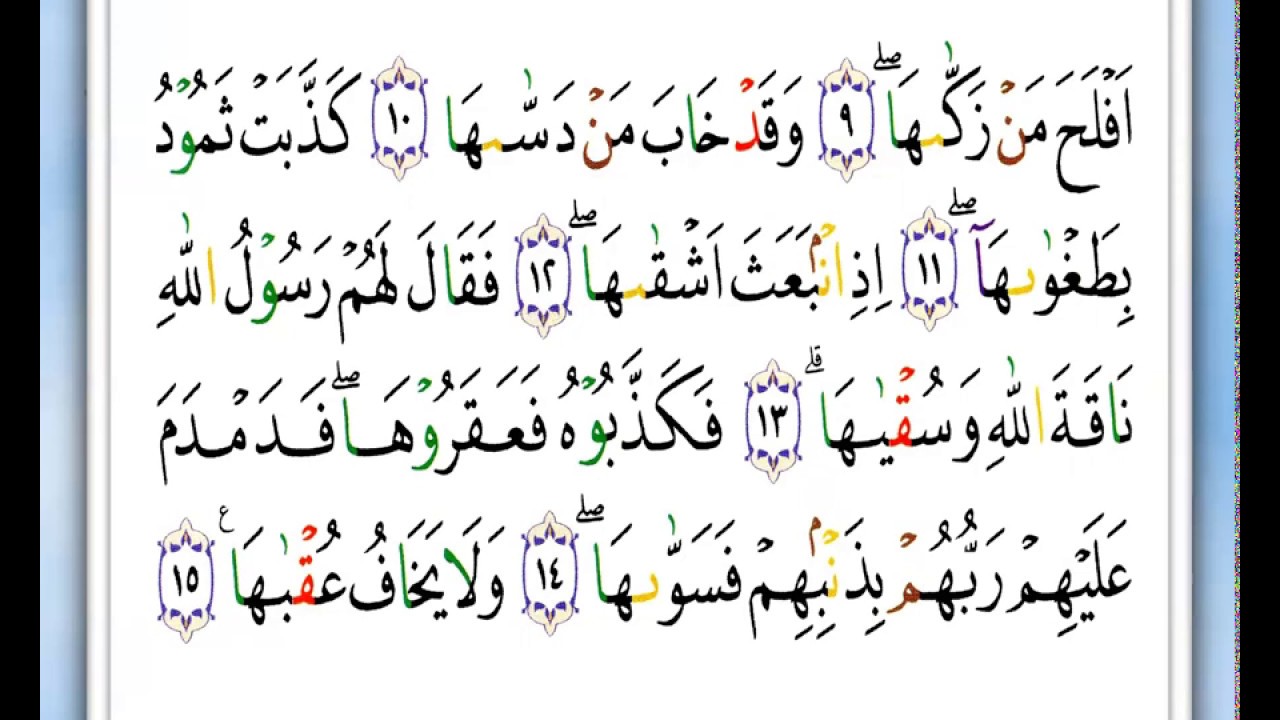 اَفْلَحَ مَنْ زَكّٰىهَاۖ ٩ وَقَدْ خَابَ مَنْ دَسّٰىهَا ١٠ كَذَّبَتْ ثَمُوْدُ
بِطَغْوٰىهَآۖ ١١ اِذِ انْۢبَعَثَ اَشْقٰىهَاۖ ١٢ فَقَالَ لَهُمْ رَسُوْلُ اللّٰهِ
نَاقَةَ اللّٰهِ وَسُقْيٰهَاۗ ١٣ فَكَذَّبُوْهُ فَعَقَرُوْهَاۖ فَدَمْدَمَ
عَلَيْهِمْ رَبُّهُمْ بِذَنْۢبِهِمْ فَسَوّٰىهَاۖ ١٤ وَلَا يَخَافُ عُقْبٰهَا ع ١٥